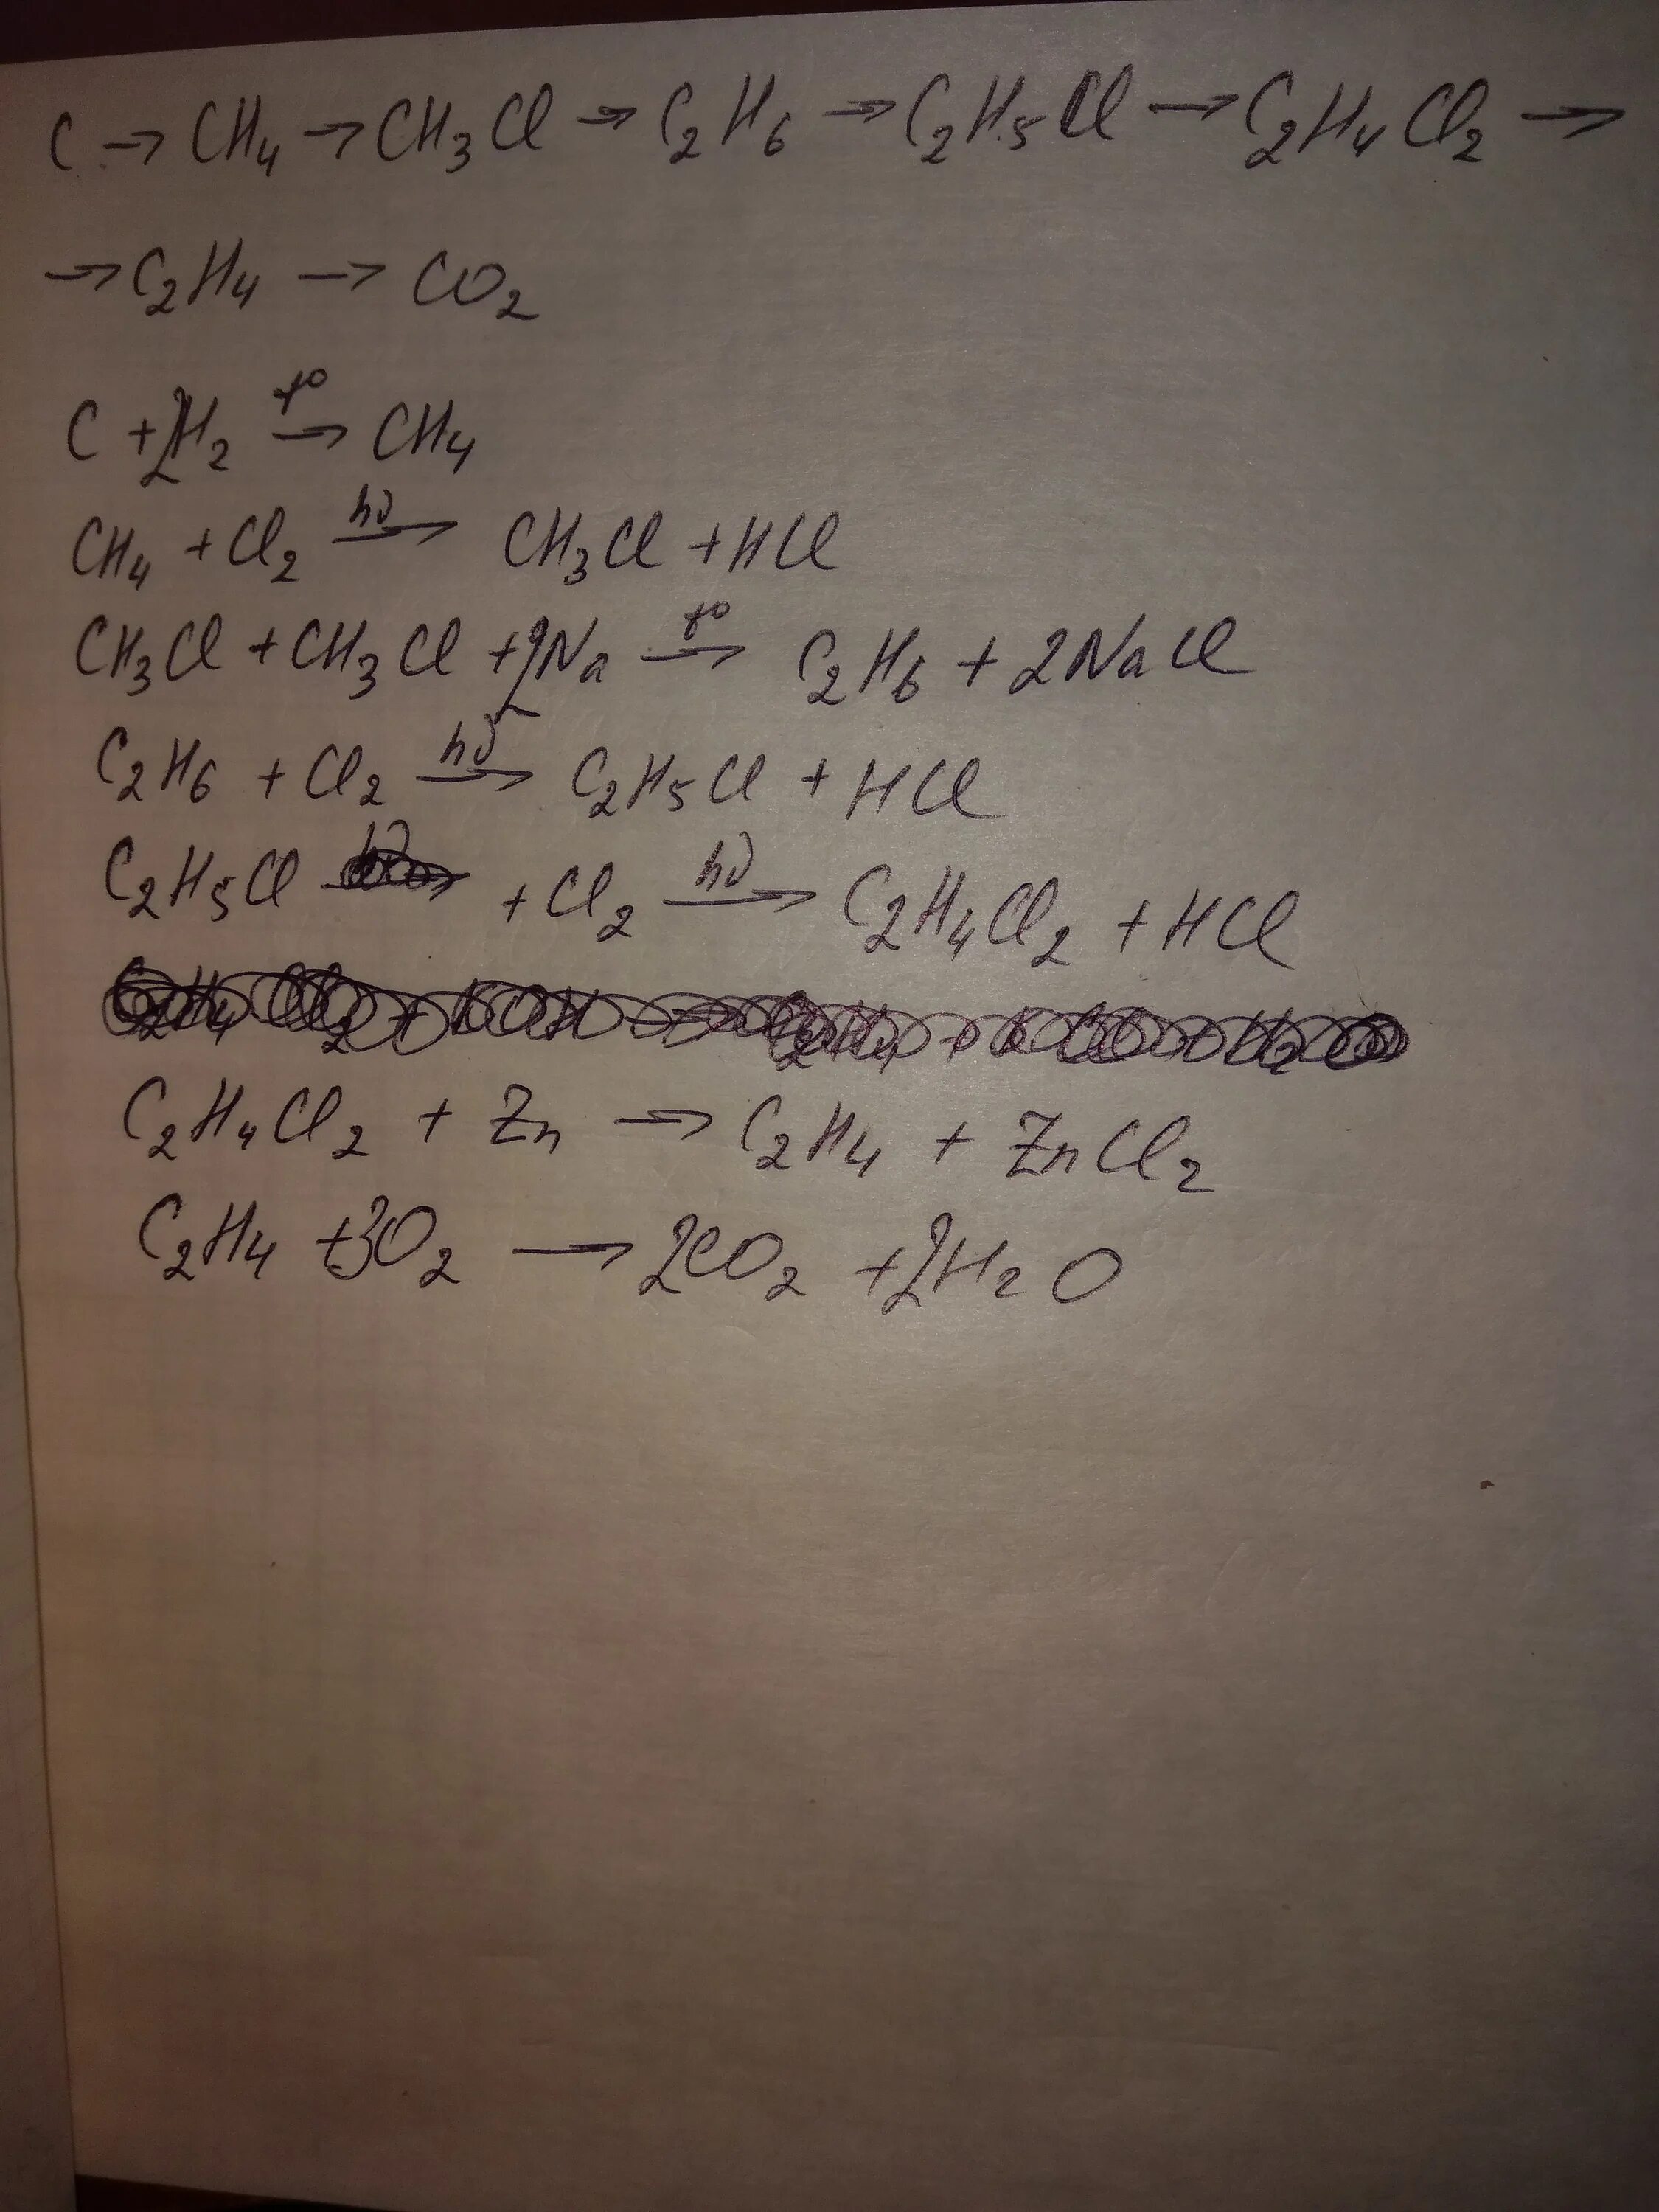 C → CH₄ → CH₃Cl → C₂H₆ → C₂H₅Cl → C₂H₄Cl₂ →
→ C₂H₄ → CO₂
C + 2H₂ t° → CH₄
CH₄ + Cl₂ hν → CH₃Cl + HCl
CH₃Cl + CH₃Cl + 2Na t° → C₂H₆ + 2NaCl
C₂H₆ + Cl₂ hν → C₂H₅Cl + HCl
C₂H₅Cl + Cl₂ hν → C₂H₄Cl₂ + HCl
C₂H₄Cl₂ + Zn → C₂H₄ + ZnCl₂
C₂H₄ + 3O₂ → 2CO₂ + 2H₂O